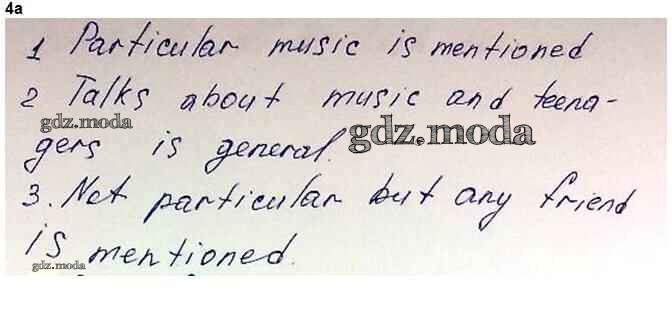 4a
1 Particular music is mentioned
2 Talks about music and teena-
gdz.moda
gers is general.
gdz.moda
3. Not particular but any friend
is mentioned.
gdz.moda